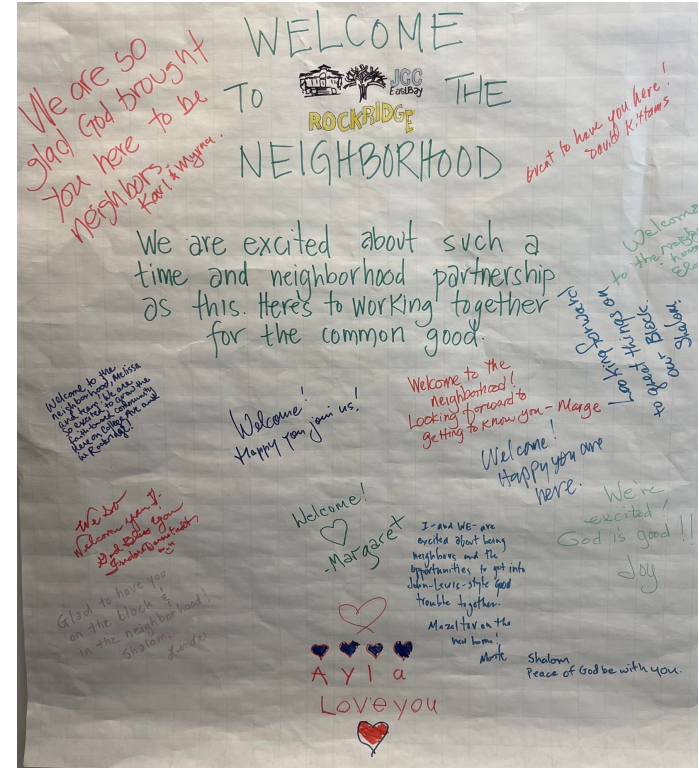 WELCOME
TO JCC EastBay THE
ROCKRIDGE
NEIGHBORHOOD
We are so
glad God brought
you here to be
neighbors.
Karl & Myrna.
Great to have you here!
David Kittams
Welcome
to the
We are excited about such a
time and neighborhood partnership
as this. Here's to working together
for the common good.
Looking forward
to great things on
our Block.
Shalom,
Welcome to the
neighborhood, Melissa
and
so excited to grow the
faith based community
Here on College Ave and
in Rockridge!
Welcome!
Happy you join us!
Welcome to the
neighborhood!
Looking forward to
getting to know you - Marge
Welcome!
Happy you are
here.
We so
Welcome you!
God Bless You
Welcome!
Margaret
I-and WE-are
excited about being
neighbors and the
opportunities to get into
John-Lewis-style good
trouble together.
Mazel tov on the
new home!
We're
excited!
God is good!!
Joy
Glad to have you
on the block &
in the neighborhood!
Shalom,
Shalom
Peace of God be with you.
Ayla
Love you